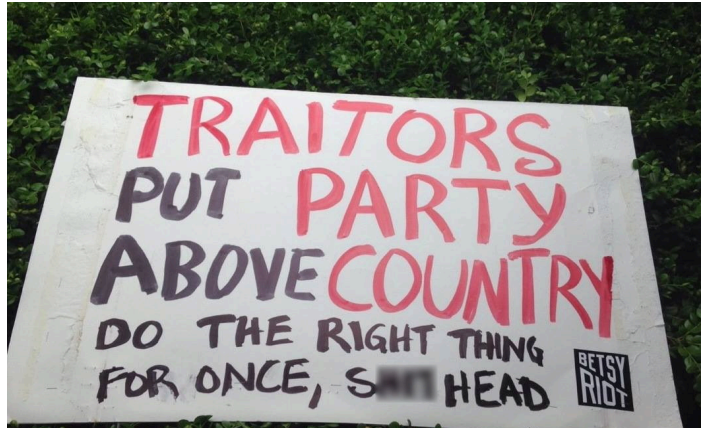 TRAITORS
PUT PARTY
ABOVE COUNTRY
DO THE RIGHT THING
FOR ONCE, S HEAD
BETSY
RIOT